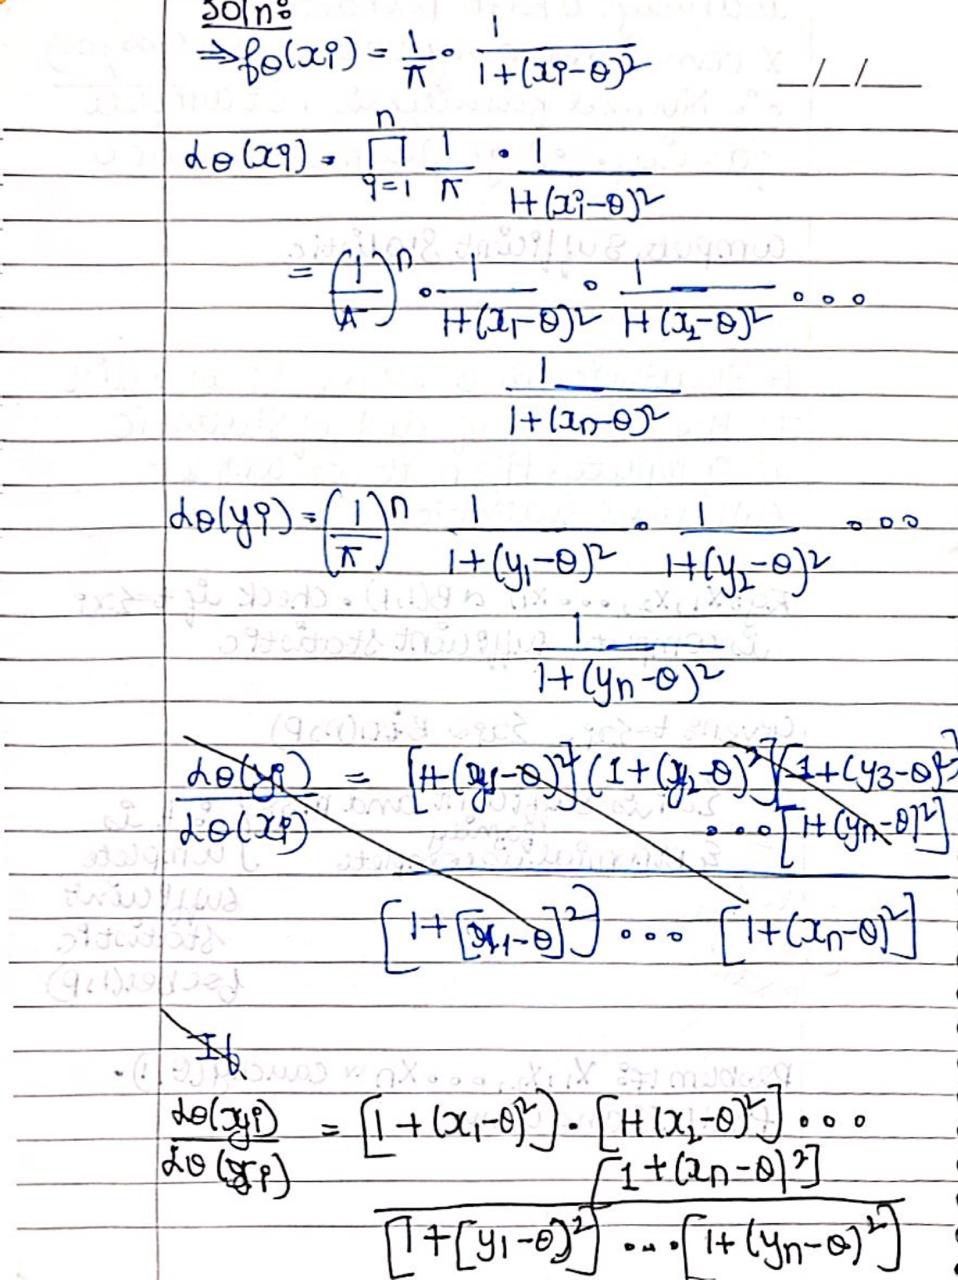 Soln:
⇒ fθ(xi) = 1/π · 1/(1+(xi-θ)²)
__/__/____
Lθ(xi) = ∏_{i=1}^{n} 1/π · 1/(1+(xi-θ)²)
= (1/π)^n · 1/(1+(x₁-θ)²) · 1/(1+(x₂-θ)²) ...
1/(1+(xn-θ)²)
Lθ(yi) = (1/π)^n 1/(1+(y₁-θ)²) · 1/(1+(y₂-θ)²) ...
1/(1+(yn-θ)²)
Lθ(yi)/Lθ(xi) = [1+(y₁-θ)²] (1+(y₂-θ)²] [1+(y₃-θ)²]
... [1+(yn-θ)²]
[1+[x₁-θ]²] ... [1+(xn-θ)²]
If
Lθ(yi)/Lθ(xi) = [1+(x₁-θ)²] · [1+(x₂-θ)²] ...
[1+(xn-θ)²]
[1+[y₁-θ)²] .... [1+(yn-θ)²]